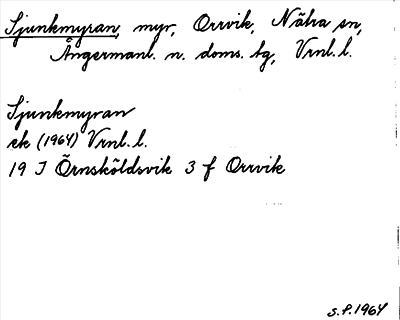 Sjunkmyran, myr, Orrvik, Nätra sn,
Ångermanl. n. doms. tg, Vrnl. l.
Sjunkmyran
ek (1964) Vrnl. l.
19 J Örnsköldsvik 3 f Orrvik
S.P. 1964